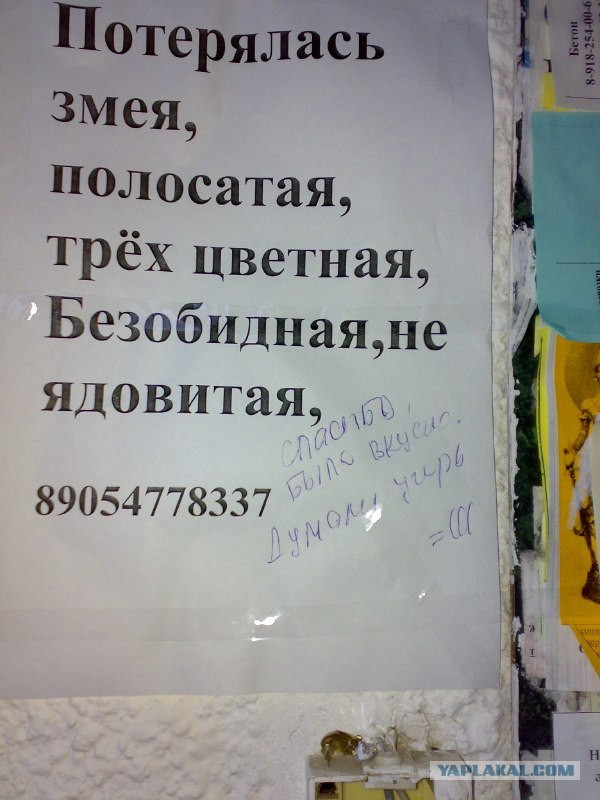 Потерялась
змея,
полосатая,
трёх цветная,
Безобидная,не
ядовитая,
спасибо,
было вкусно.
Думали угорь
=(((
89054778337
Бетон
8-918-254-00-6
YAPLAKAL.COM